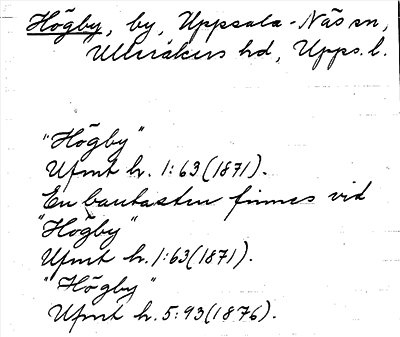 Högby, by, Uppsala-Näs sn,
Ulleråkers hd, Upps. l.
"Högby"
Ufmt h. 1:63 (1871).
En bautasten finnes vid
"Högby"
Ufmt h. 1:63 (1871).
"Högby"
Ufmt h. 5:93 (1876).